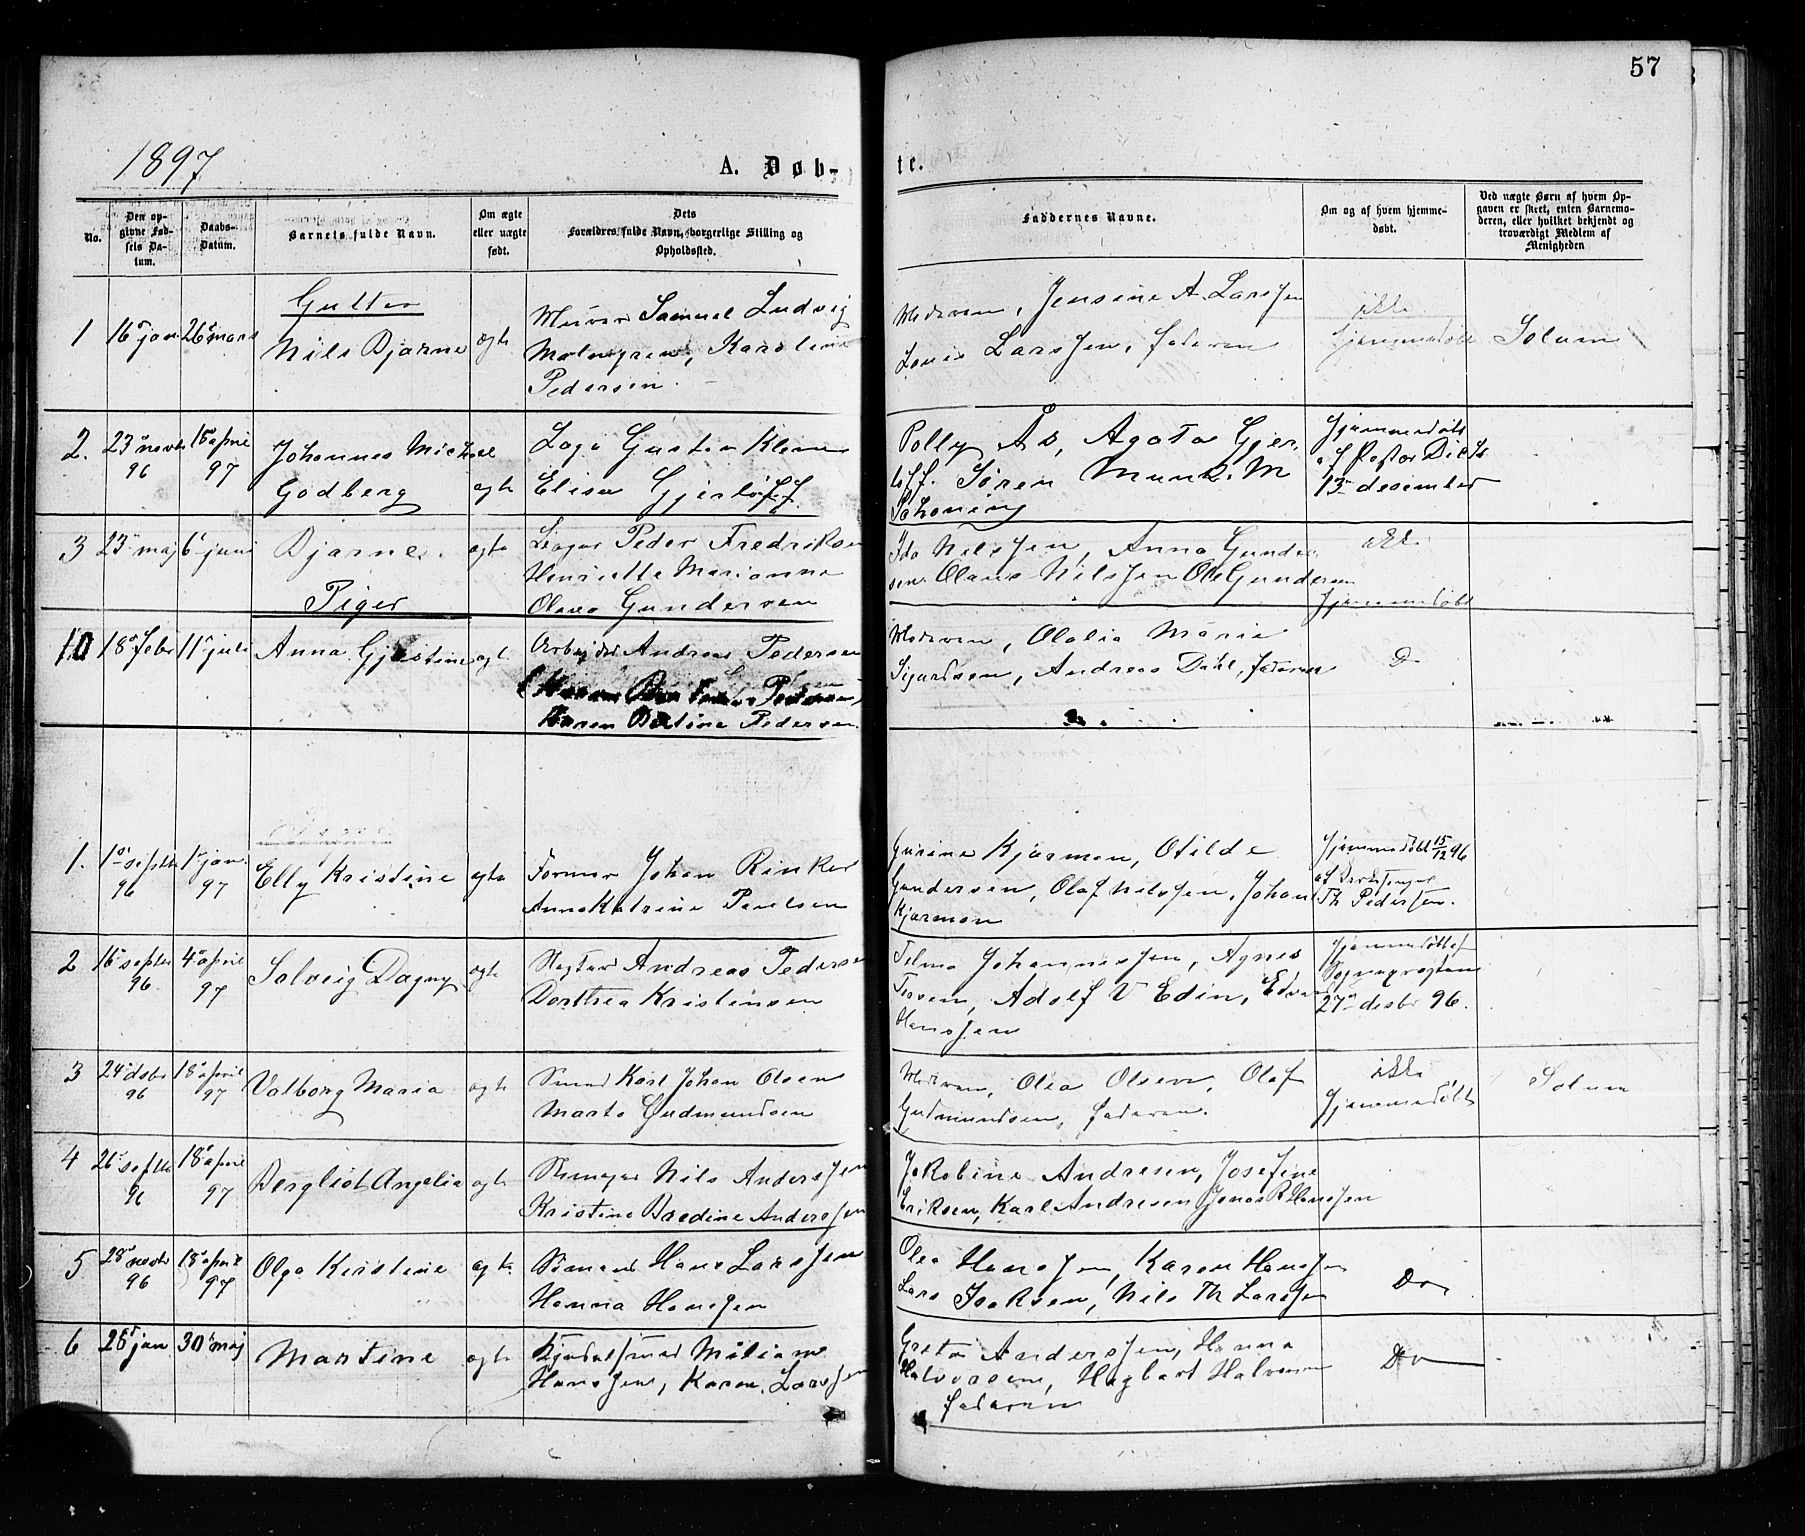 57
1897
A. Døb-
te.
No.
Den opgivne Fødsels Datum.
Daabs-Datum.
Barnets fulde Navn.
Om ægte eller uægte født.
Dets Forældres fulde Navn, borgerlige Stilling og Opholdssted.
Faddernes Navne.
Om og af hvem hjemmedøbt.
Ved uægte Børn af hvem Opgaven er skret, enten Barnemoderen, eller hvilket bekjendt og troværdigt Medlem af Menigheden
Gutter
1 16 jan 26 mars Nils Bjarne ægte
Murer Samuel Ludvig
Malmgren, Karoline
Pedersen.
Moderen, Jensine A. Larssen
Louis Larssen, faderen
ikke
hjemmedøbt
Solum
2. 23 novbr 96 18 april 97
Johannes Michael
Godberg ægte
Gustav Klem
Elisa Gjerløff
Polly Ås, Agata Gjer-
løff. Søren Munk. M
Schoning
Hjemmedøbt
af Pastor
13 desember
3 23 maj 6 juni Bjarne. ægte
Peder Fredriksen
Henriette Marianne
Olava Gundersen
Ida Nilssen, Anna Gunder
sen. Olaus Nilssen Ole Gundersen
ikke
hjemmedøbt
Piger
10 18 febr 11 juli Anna Gjestine ægte
Arbejder Andreas Pedersen
Karen Bertine Pedersen.
Moderen, Olalia Marie
Sigurdsen, Andreas Dahl, faderen
Do
1. 1 septbr 96 1 jan. 97
Elly Kristine ægte
Former Johan Rinker
Anna Katrine Paulsen
Gurine Kjørmon, Otilde
Gundersen, Olaf Nilssen, Johan
Kjørmon
Hjemmedøbt 15/12 96
af
Th Pedersen.
2 16 septbr 96 4 april 97
Solveig Dagny ægte
Andreas Pedersen
Dorthea Kristensen
Telma Johannessen, Agnes
Adolf V Edin, Edvard
Hanssen
Hjemmedøbt af
Sogneprosten
27 desbr 96.
3 24 dsbr 96 18 april 97
Valborg Maria ægte
Smed Karl Johan Olsen
Marta Gudmundsen
Moderen, Olea Olsen, Olaf
Gudmundsen, faderen.
ikke
hjemmedøbt
Solum
4 26 septbr 96 18 april 97
Bergliot Angelia ægte
Nils Anderssen
Kristine Bredine Anderssen
Jakobine Andresen, Josefine
Eriksen, Karl Andresen Jonas R Hanssen
5 28 novbr 96 18 april 97
Olga Kirstine ægte.
Sømand Hans Larssen
Hanna Hanssen
Olea Hanssen, Karen Hanssen
Lars Isaksen, Nils Th Larssen
Do
6 28 jan 30 maj
Martine ægte
Hanssen, Karen Larssen
Greta Anderssen, Hanna
Halvorsen, Hagbart Halvorsen
faderen
Do